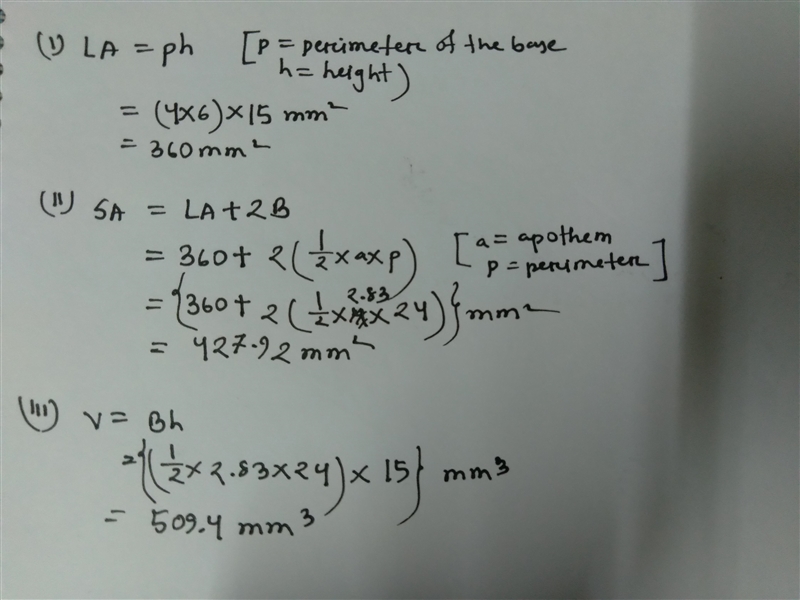 (I) LA = ph [p = perimeter of the base
h = height)
= (4×6)×15 mm²
= 360 mm²
(II) SA = LA + 2B
= 360 + 2(1/2 × a × p) [a = apothem
p = perimeter]
= {360 + 2(1/2 × 2.83 × 24)} mm²
= 427.92 mm²
(III) V = Bh
= {(1/2 × 2.83 × 24) × 15} mm³
= 509.4 mm³